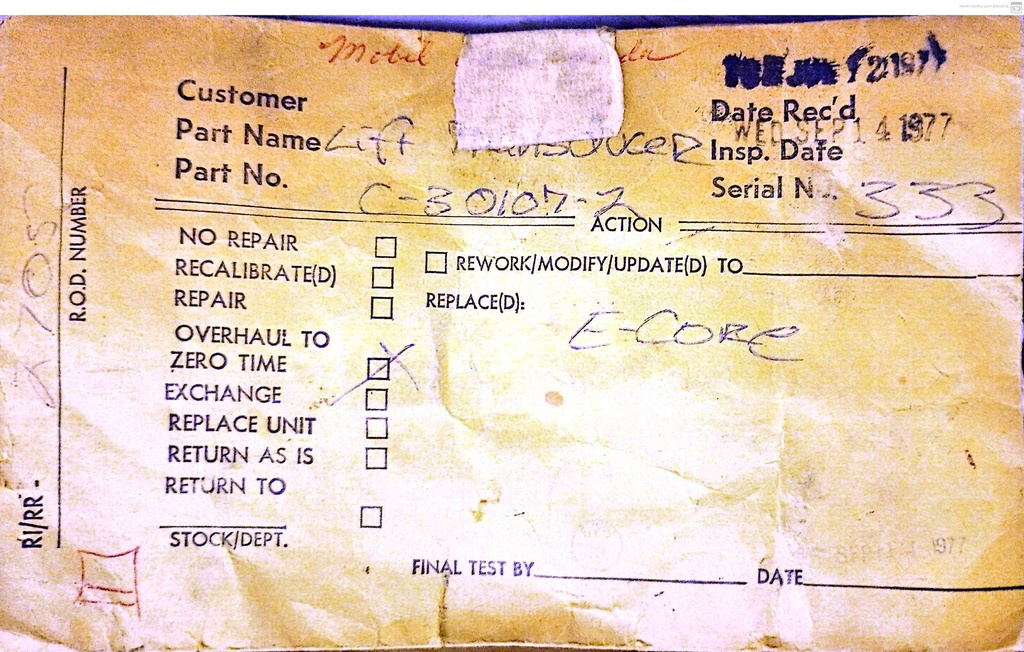 Mobil
Customer
Date Rec'd
Part Name Lift Transducer
WED SEP 14 1977
Insp. Date
Part No. C-30107-2
Serial No. 333
ACTION
NO REPAIR
RECALIBRATE(D)
REPAIR
OVERHAUL TO
ZERO TIME X
EXCHANGE
REPLACE UNIT
RETURN AS IS
RETURN TO
STOCK/DEPT.
REWORK/MODIFY/UPDATE(D) TO
REPLACE(D):
E-CORE
FINAL TEST BY
DATE
1977
R.O.D. NUMBER
RI/RR-